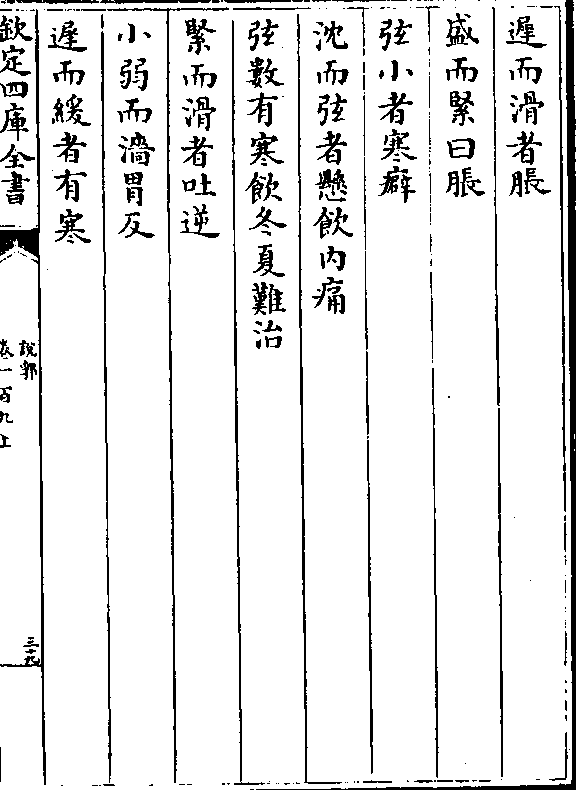 遲而滑者脹
盛而緊曰脹
弦小者寒癖
沈而弦者懸飲内痛
弦數有寒飲冬夏難治
緊而滑者吐逆
小弱而濇胃反
遲而緩者有寒
欽定四庫全書
說郛
卷一百九上
三十九